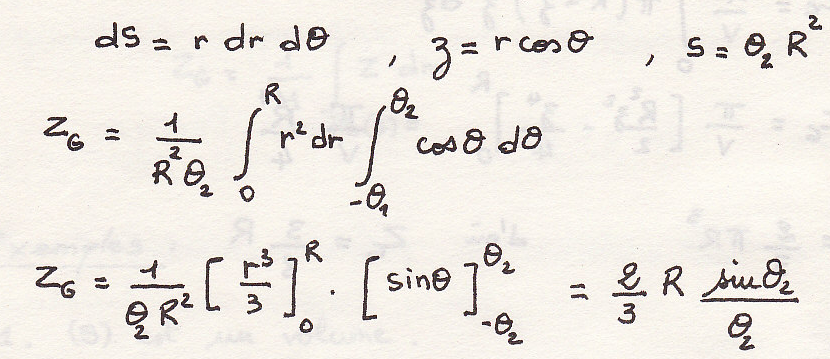 dS = r dr dθ , z = r cosθ , S = θ₂ R²
Z_G = 1/(R² θ₂) ∫₀^R r² dr ∫_{-θ₁}^{θ₂} cosθ dθ
Z_G = 1/(θ₂ R²) [r³/3]₀^R · [sinθ]_{-θ₂}^{θ₂} = 2/3 R sinθ₂/θ₂